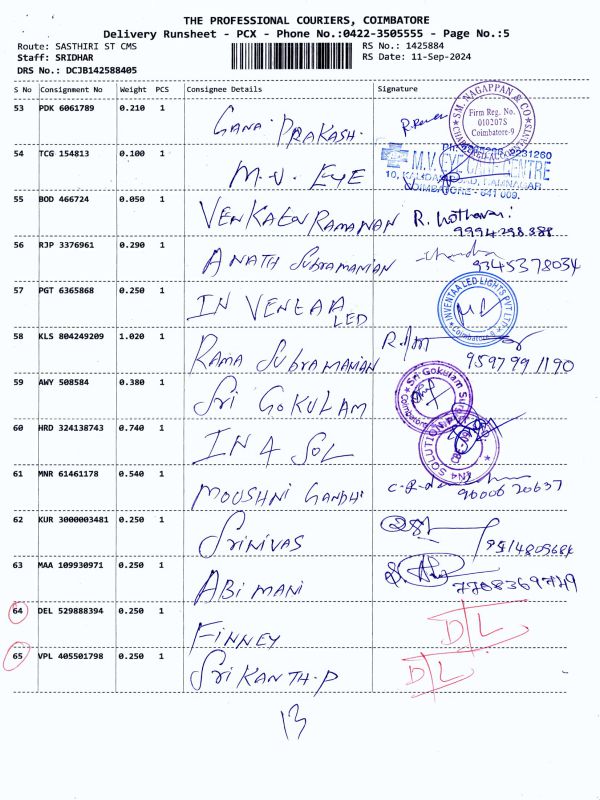 THE PROFESSIONAL COURIERS, COIMBATORE
Delivery Runsheet - PCX - Phone No.:0422-3505555 - Page No.:5
Route: SASTHIRI ST CMS RS No.: 1425884
Staff: SRIDHAR RS Date: 11-Sep-2024
DRS No.: DCJB142588405
S No Consignment No Weight PCS Consignee Details Signature
53 PDK 6061789 0.210 1 GANA PRAKASH. SM. NAGAPPAN & CO Firm Reg. No. 010207S Coimbatore-9
54 TCG 154813 0.100 1 M.V. EYE M.V. EYE CARE CENTRE
COIMBATORE - 641 009.
55 BOD 466724 0.050 1 VENKATA RAMANAN
56 RJP 3376961 0.290 1 ANATH SUBRAMANIAN 9345378034
57 PGT 6365868 0.250 1 INVENTAA LED INVENTAA LED LIGHTS PVT LTD Coimbatore
58 KLS 804249209 1.020 1 RAMA SUBRAMANIAN 9597991190
59 AWY 508584 0.380 1 Sri GOKULAM Sri Gokulam
60 HRD 324138743 0.740 1 IN 4 SOL IN4 SOLUTION
61 MNR 61461178 0.540 1 MOUSHNI GANDHI 9600620637
62 KUR 3000003481 0.250 1 SRINIVAS
63 MAA 109930971 0.250 1 ABI MANI
64 DEL 529888394 0.250 1 FINNEY D/L
65 VPL 405501798 0.250 1 SRIKANTH.P D/L
13